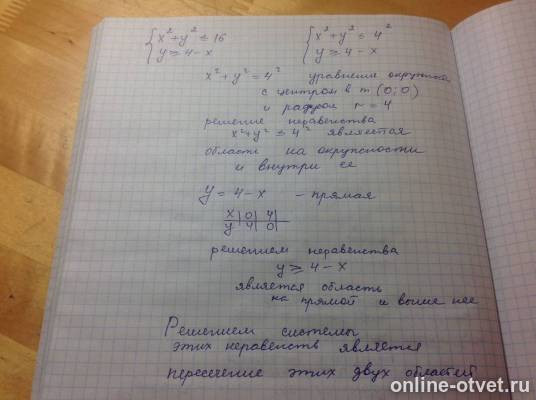 x² + y² ≤ 16
y ≥ 4 - x
x² + y² ≤ 4²
y ≥ 4 - x
x² + y² = 4² уравнения окружнос
с центром в т (0; 0)
и радусом r = 4
решение неравенства
x² + y² ≤ 4² является
области на окружности
и внутри её
y = 4 - x - прямая
x | 0 | 4 |
y | 4 | 0 |
решением неравенства
y ≥ 4 - x
является область
на прямой и выше нее
Решением системы
этих неравенств является
пересечение этих двух областей
online-otvet.ru